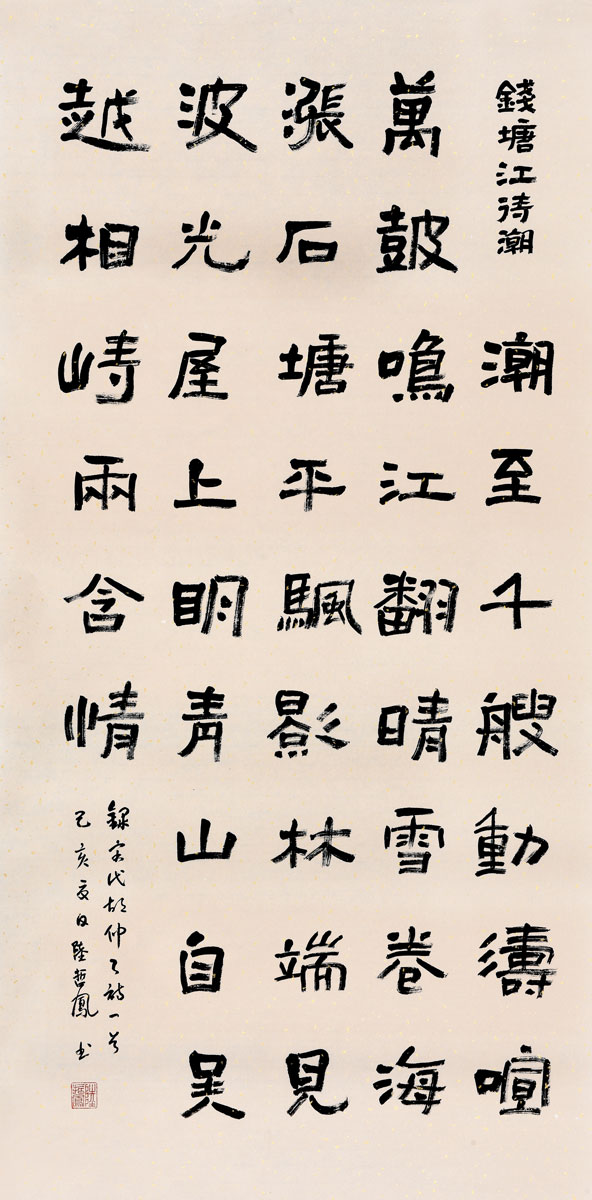 錢塘江待潮
潮至千艘動濤喧
萬皷鳴江翻晴雪卷海
漲石塘平颿影林端見
波光屋上眀青山自吴
越相峙兩含情
錄宋代胡仲弓詩一首
己亥夏日陸哲鳳書